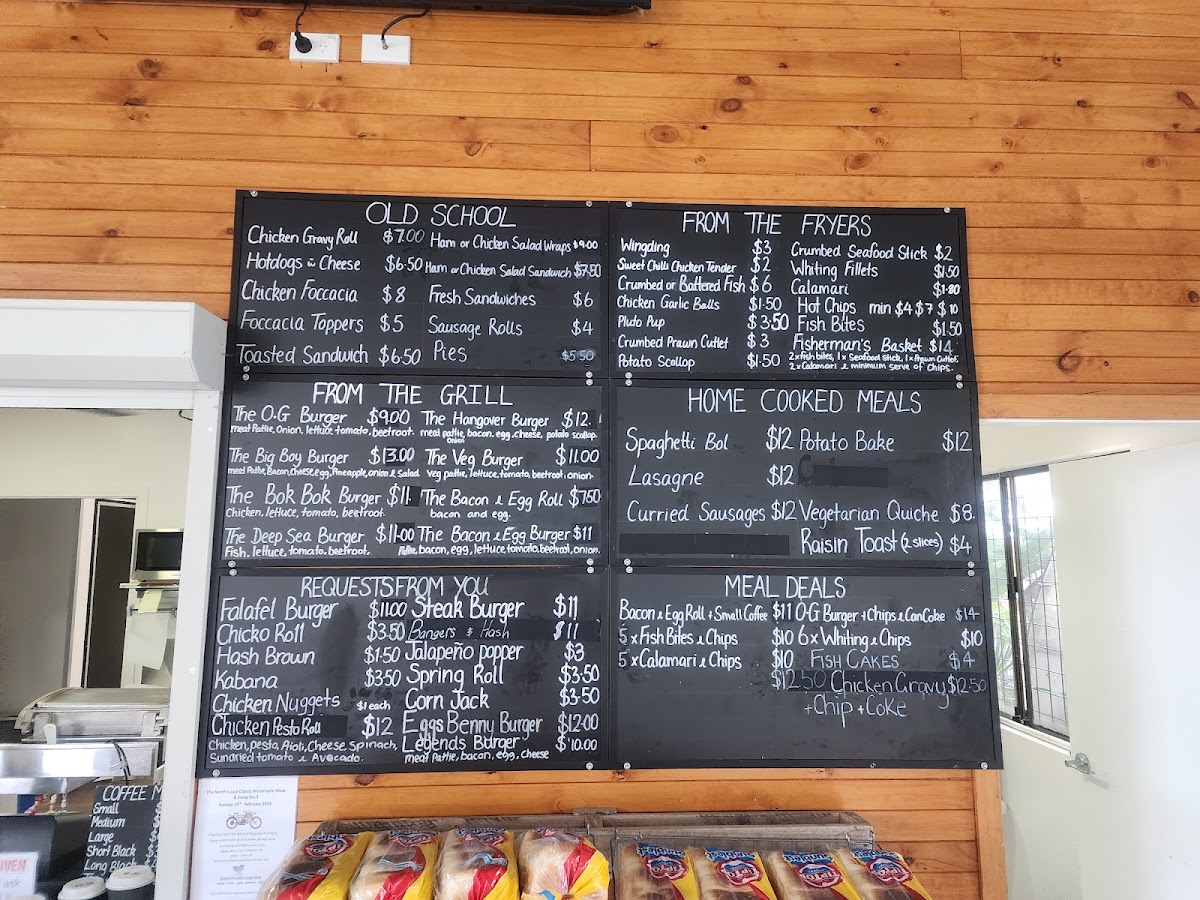 OLD SCHOOL
Chicken Gravy Roll $7.00
Hotdogs & Cheese $6.50
Chicken Foccacia $8
Foccacia Toppers $5
Toasted Sandwich $6.50
Ham or Chicken Salad Wraps $9.00
Ham or Chicken Salad Sandwich $7.50
Fresh Sandwiches $6
Sausage Rolls $4
Pies $5.50
FROM THE FRYERS
Wingding $3
Sweet Chilli Chicken Tender $2
Crumbed or Battered Fish $6
Chicken Garlic Balls $1.50
Pluto Pup $3.50
Crumbed Prawn Cutlet $3
Potato Scallop $1.50
Crumbed Seafood Stick $2
Whiting Fillets $1.50
Calamari $1.80
Hot Chips min $4 $7 $10
Fish Bites $1.50
Fisherman's Basket $14
2x fish bites, 1x Seafood Stick, 1x Prawn Cutlet,
2x Calamari & minimum serve of Chips.
FROM THE GRILL
The O.G Burger $9.00
meat Pattie, Onion, lettuce, tomato, beetroot.
The Big Boy Burger $13.00
meat Pattie, Bacon, Cheese, egg, Pineapple, onion & Salad
The Bok Bok Burger $11
Chicken, lettuce, tomato, beetroot.
The Deep Sea Burger $11.00
Fish, lettuce, tomato, beetroot,
The Hangover Burger $12.
meat pattie, bacon, egg, cheese, potato scallop.
Onion
The Veg Burger $11.00
Veg pattie, lettuce, tomato, beetroot, onion.
The Bacon & Egg Roll $7.50
bacon and egg.
The Bacon & Egg Burger $11
Pattie, bacon, egg, lettuce, tomato, beetroot, onion.
HOME COOKED MEALS
Spaghetti Bol $12
Lasagne $12
Curried Sausages $12
Potato Bake $12
Vegetarian Quiche $8
Raisin Toast (2 slices) $4
REQUESTS FROM YOU
Falafel Burger $11.00
Chicko Roll $3.50
Hash Brown $1.50
Kabana $3.50
Chicken Nuggets $1 each
Chicken Pesto Roll $12
Chicken, pesto, Aioli, Cheese, Spinach,
Sundried tomato & Avocado.
Steak Burger $11
Bangers & Hash $11
Jalapeño popper $3
Spring Roll $3.50
Corn Jack $3.50
Eggs Benny Burger $12.00
Legends Burger $10.00
meat Pattie, bacon, egg, cheese
MEAL DEALS
Bacon & Egg Roll + Small Coffee $11
5 x Fish Bites & Chips $10
5 x Calamari & Chips $10
$12.50
O-G Burger + Chips & Can Coke $14
6x Whiting & Chips $10
Fish Cakes $4
Chicken Gravy $12.50
+ Chip + Coke
COFFEE M
Small
Medium
Large
Short Black
Long Black
The North Coast Classic Motorcycle Show